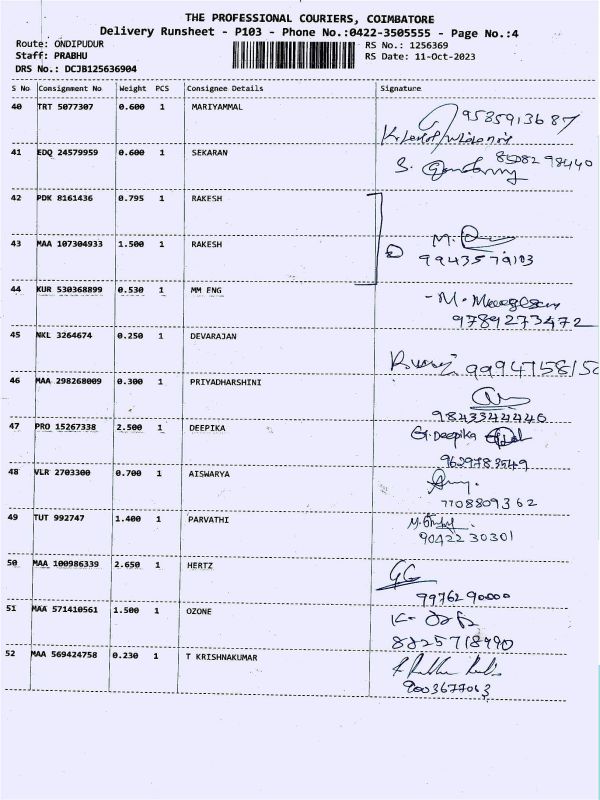 THE PROFESSIONAL COURIERS, COIMBATORE
Delivery Runsheet - P103 - Phone No.:0422-3505555 - Page No.:4
Route: ONDIPUDUR RS No.: 1256369
Staff: PRABHU RS Date: 11-Oct-2023
DRS No.: DCJB125636904
S No Consignment No Weight PCS Consignee Details Signature
40 TRT 5077307 0.600 1 MARIYAMMAL
9535913687
41 EDQ 24579959 0.600 1 SEKARAN 8508298440
S.
42 PDK 8161436 0.795 1 RAKESH
43 MAA 107304933 1.500 1 RAKESH M.
9943579103
44 KUR 530368899 0.530 1 MM ENG - M.
9789273472
45 NKL 3264674 0.250 1 DEVARAJAN
9994758150
46 MAA 298268009 0.300 1 PRIYADHARSHINI
9843344446
47 PRO 15267338 2.500 1 DEEPIKA G.Deepika
9629783549
48 VLR 2703300 0.700 1 AISWARYA
7708809362
49 TUT 992747 1.400 1 PARVATHI
9042230301
50 MAA 100986339 2.650 1 HERTZ
9976290000
51 MAA 571410561 1.500 1 OZONE K-
8825718990
52 MAA 569424758 0.230 1 T KRISHNAKUMAR
9003677063